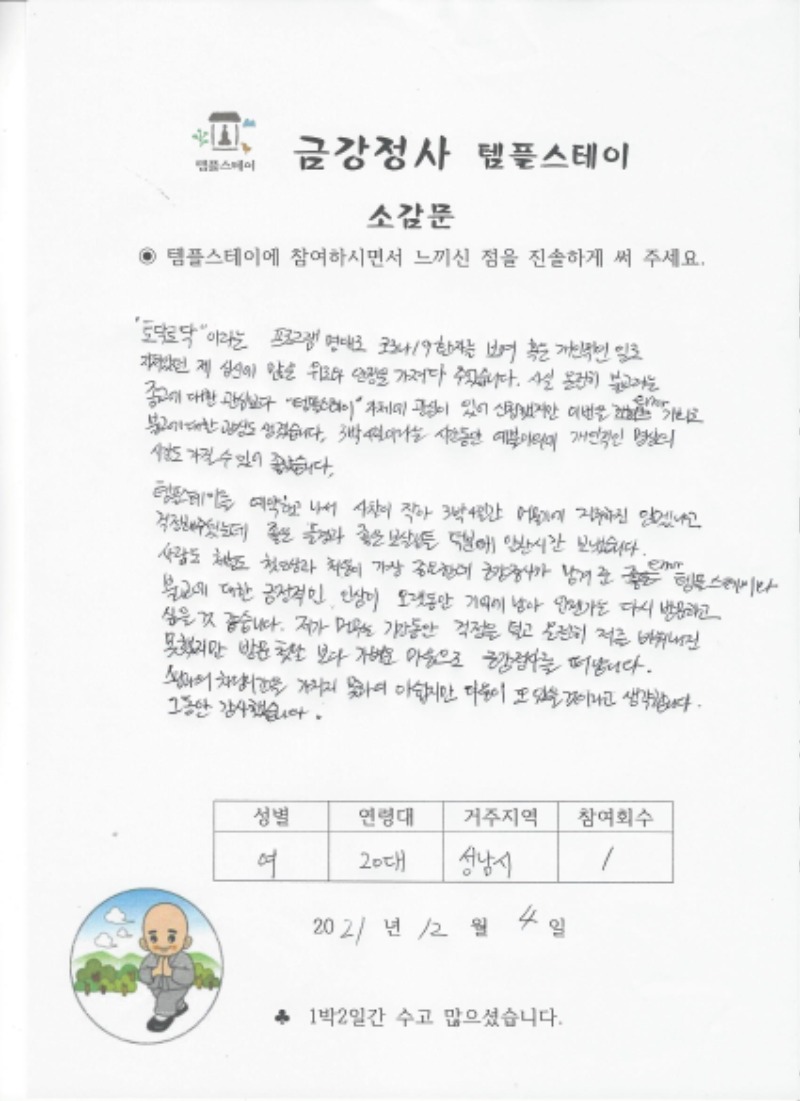 템플스테이
금강정사 템플스테이
소감문
◉ 템플스테이에 참여하시면서 느끼신 점을 진솔하게 써 주세요.
"토닥토닥"이라는 프로그램 명대로 코로나19 혹은 개인적인 일로
지쳐있던 제 심신에 많은 위로와 안정을 가져다 주었습니다. 사실 온전히 불교라는
종교에 대한 관심보다 "템플스테이" 자체에 관심이 있어 신청했지만 이번 기회로
불교에 대한 관심도 생겼습니다. 3박4일이라는 시간동안 예불이외에 개인적인 명상의
시간도 가질 수 있어 좋았습니다.
템플스테이를 예약하고 나서 사찰이 작아 3박4일간 머물기에 지루하진 않겠냐고
걱정해주셨는데 좋은 풍경과 좋은 보살님들 덕분에 알찬시간 보냈습니다.
사람도 첫인상과 처음이 가장 중요한데 금강정사가 남겨 준 템플스테이와
불교에 대한 긍정적인 인상이 오랫동안 기억에 남아 언젠가는 다시 방문하고
싶을 것 같습니다. 제가 머무는 기간동안 걱정을 덜고 온전히 저를 비워내진
못했지만 방문 첫날 보다 가벼운 마음으로 금강정사를 떠납니다.
스님과의 차담시간을 가지지 못하여 아쉽지만 다음이 또 있을 것이라고 생각합니다.
그동안 감사했습니다.
성별 연령대 거주지역 참여회수
여 20대 성남시 1
2021 년 12 월 4 일
♣ 1박2일간 수고 많으셨습니다.